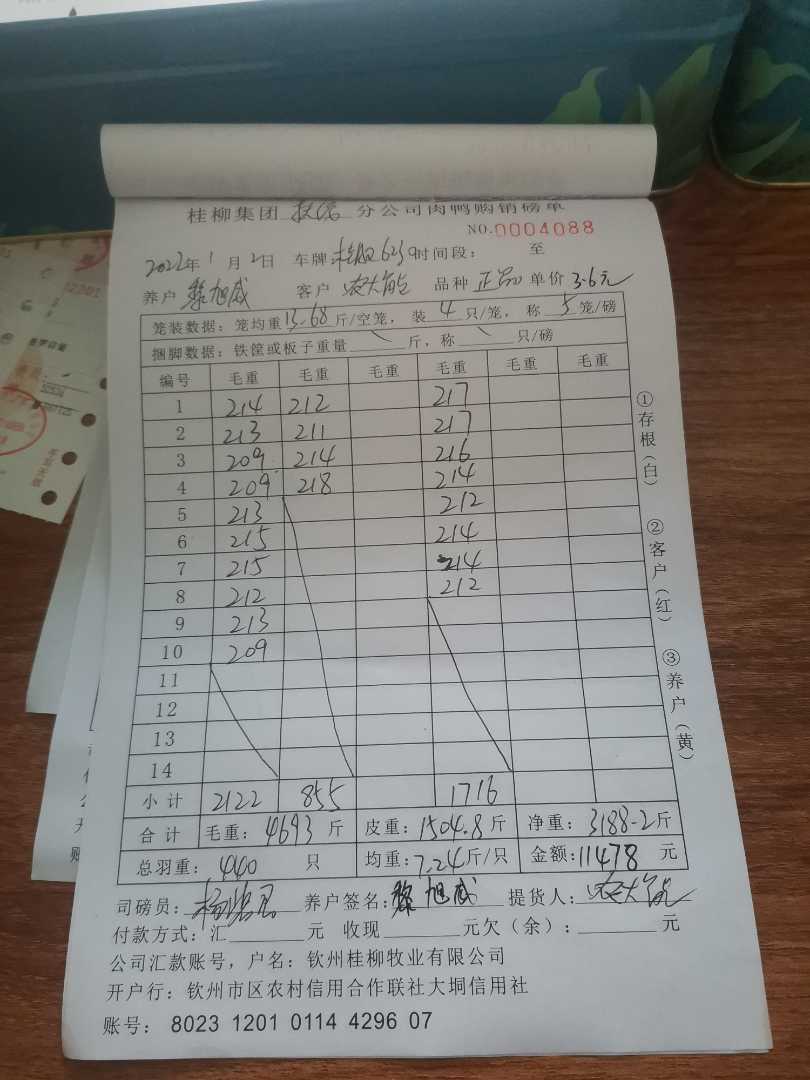 桂柳集团 扶绥 分公司肉鸭购销磅单
NO.0004088
2022年1月2日 车牌 时间段: 至
养户 黎旭威 客户 农大能 品种 正品 单价 3.6元
笼装数据: 笼均重 13.68 斤/空笼, 装 4 只/笼, 称 5 笼/磅
捆脚数据: 铁筐或板子重量 \ 斤, 称 \ 只/磅
编号 毛重 毛重 毛重 毛重 毛重 毛重
1 214 212 217
2 213 211 217
3 209 214 216
4 209 218 214
5 213 212
6 215 214
7 215 214
8 212 212
9 213
10 209
11
12
13
14
小计 2122 855 1716
合计 毛重: 4693 斤 皮重: 1504.8 斤 净重: 3188.2 斤
总羽重: 440 只 均重: 7.24 斤/只 金额: 11478 元
司磅员: 养户签名: 黎旭威 提货人: 农大能
付款方式: 汇 元 收现 元欠(余): 元
公司汇款账号, 户名: 钦州桂柳牧业有限公司
开户行: 钦州市区农村信用合作联社大垌信用社
账号: 8023 1201 0114 4296 07
①存根(白)
②客户(红)
③养户(黄)